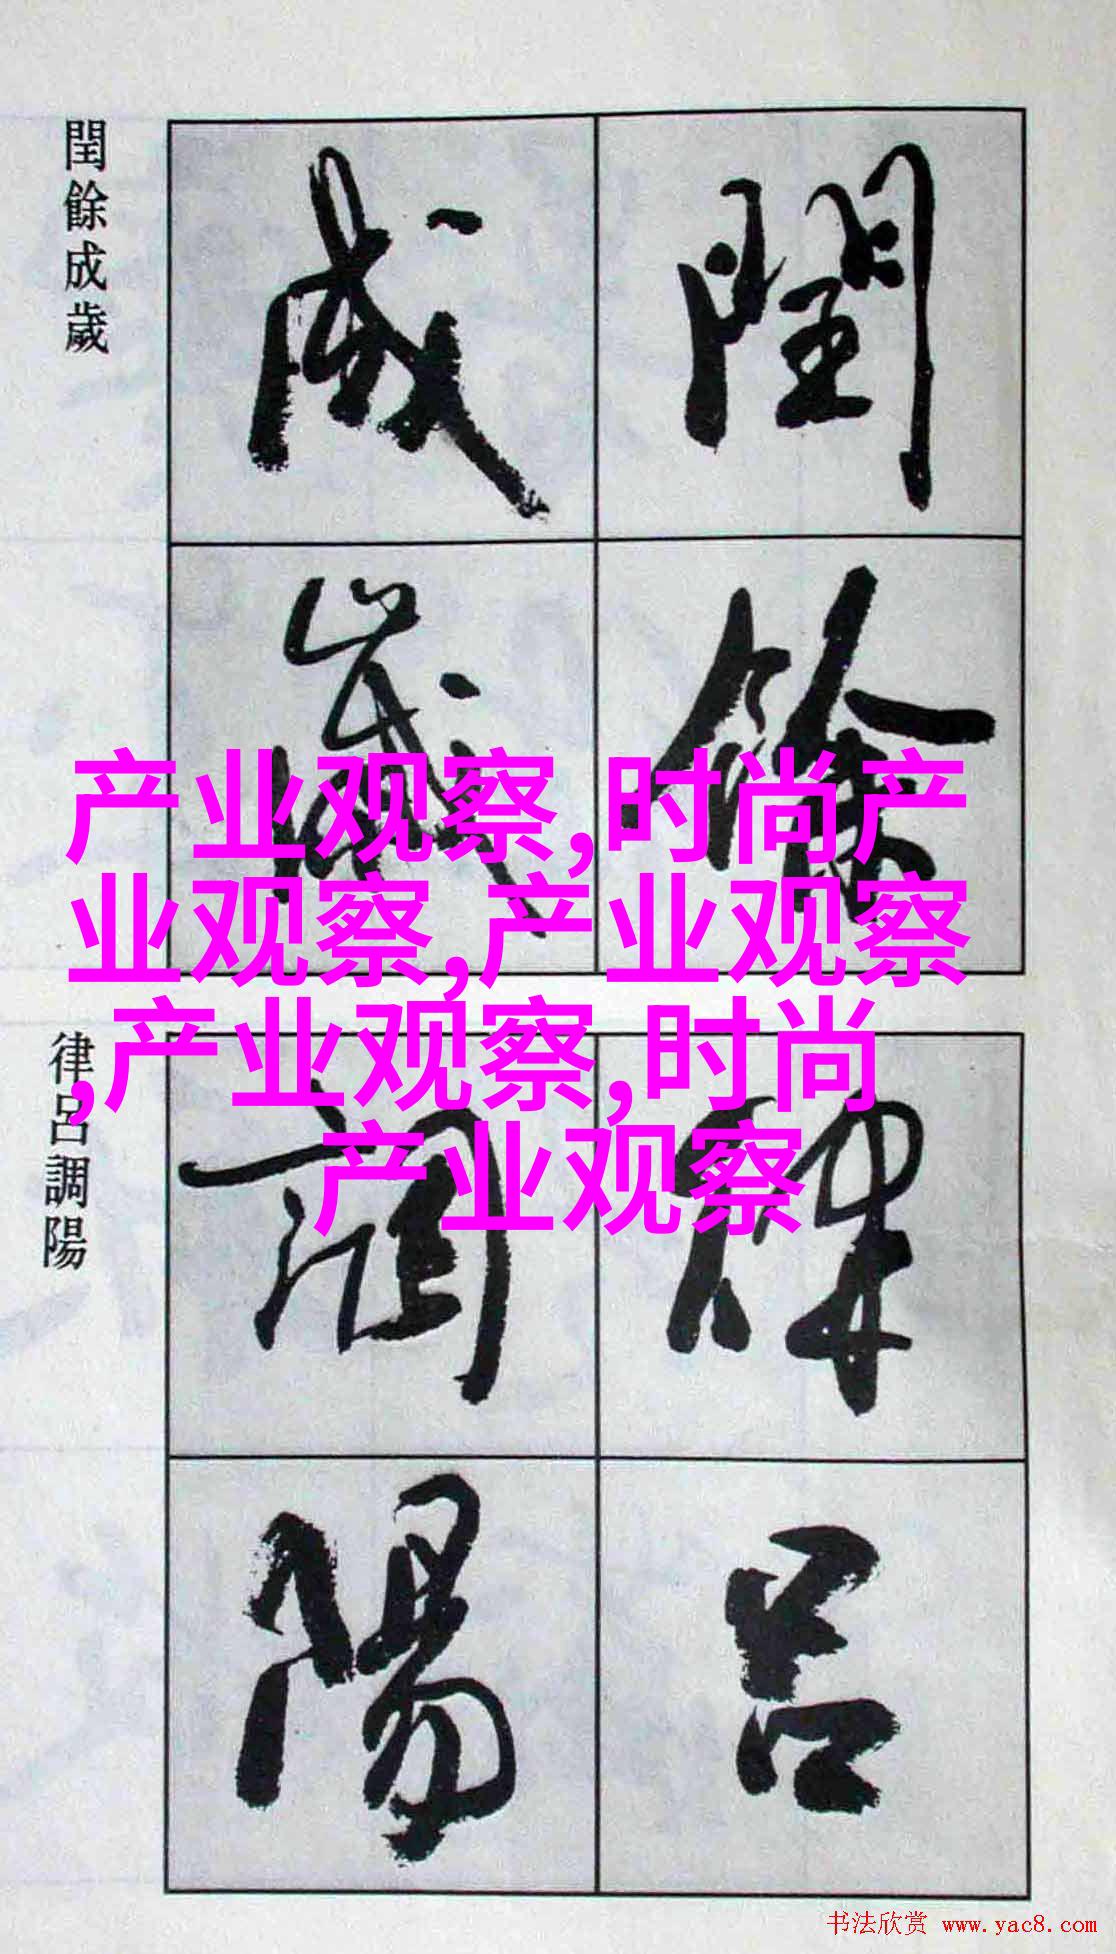 閏餘成歲
閏餘
成歲
产业观察,时尚产
业观察,产业观察
,产业观察,时尚
产业观察
律呂調陽
律呂
調陽
书法欣赏 www.yac8.com